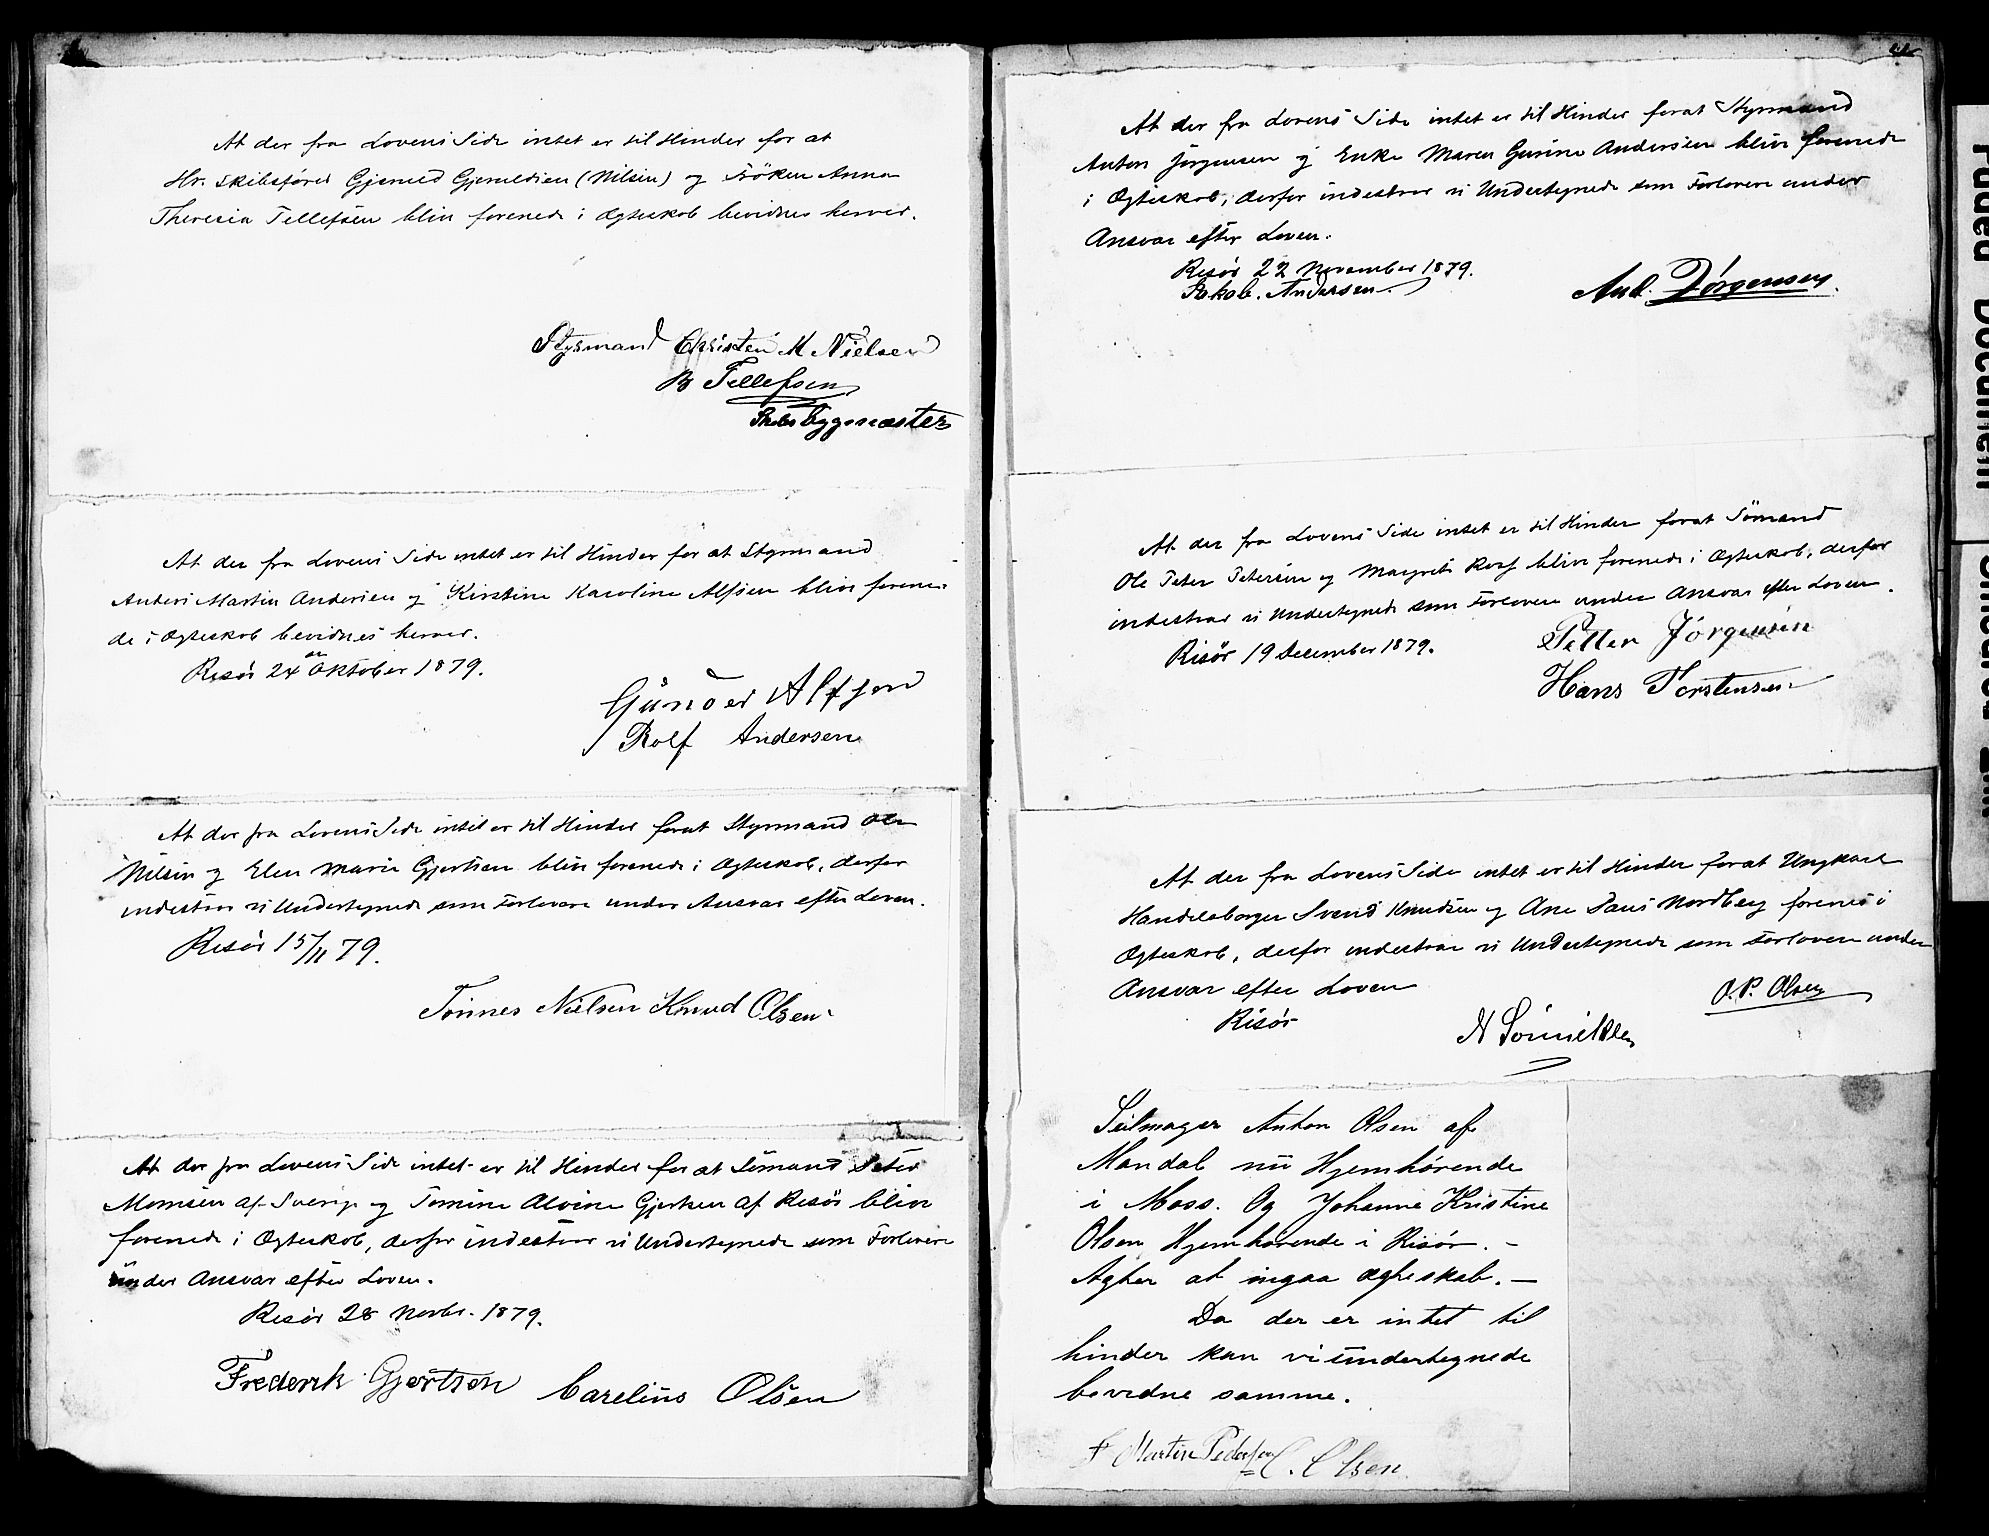 At der fra Lovens Side intet er til Hinder for at
Hr. Skibsförer Gjerned Gjernedsen (Nilsen) og Fröken Anna
Theresia Tellefsen blive forenede i Ægteskob bevidnes herved.
Styrmand Christen M Nielsen
B Tellefsen
Skibsbygmester
At der fra Lovens Side intet er til Hinder for at Styrmand
Anders Martin Andersen og Kirstine Karoline Alfsen blive forene-
de i Ægteskob bevidnes herved.
Risör 24 de Oktober 1879.
Gunder Alfsen
Rolf Andersen
At der fra Lovens Side intet er til Hinder forat Styrmand Ole
Nilsen og Elen Marie Gjertsen blive forenede i Ægteskob, derfor
indestaar vi Undertegnede som Forlovere under Ansvar efter Loven.
Risör 15/11 79.
Tönnes Nielsen Knud Olsen
At der fra Lovens Side intet er til Hinder for at Sömand Peter
Monsen af Sverig og Tomine Alvine Gjertsen af Risör blive
forenede i Ægteskob, derfor indestaar vi Undertegnede som Forlovere
under Ansvar efter Loven.
Risör 28 Novbr. 1879.
Frederik Gjertsen Carelius Olsen
At der fra Lovens Side intet er til Hinder forat Styrmand
Anton Jörgensen og Enke Maren Gurine Andersen blive forenede
i Ægteskob, derfor indestaar vi Undertegnede som Forlovere under
Ansvar efter Loven.
Risör 22 November 1879.
Jakob. Andersen. And. Jörgensen.
At der fra Lovens Side intet er til Hinder forat Sömand
Ole Peter Petersen og Margrete Rorf blive forenede i Ægteskob, derfor
indestaar vi Undertegnede som Forlovere under Ansvar efter Loven.
Risör 19 December 1879. Petter Jörgensen
Hans Torstensen
At der fra Lovens Side intet er til Hinder forat Ungkarl
Handelsborger Svend Knudsen og Ane Nordberg forenes i
Ægteskob, derfor indestaar vi Undertegnede som Forlovere under
Ansvar efter Loven
Risör O. P. Olsen
N
Seilmager Anton Olsen af
Mandal nu Hjemhørende
i Moss. Og Johanne Kristine
Olsen Hjemhørende i Risør. –
Agter at ingaa ægteskab. –
Da der er intet til
hinder kan vi undertegnede
bevidne samme.
F Martin Pedersen C. Olsen.
Faded Document